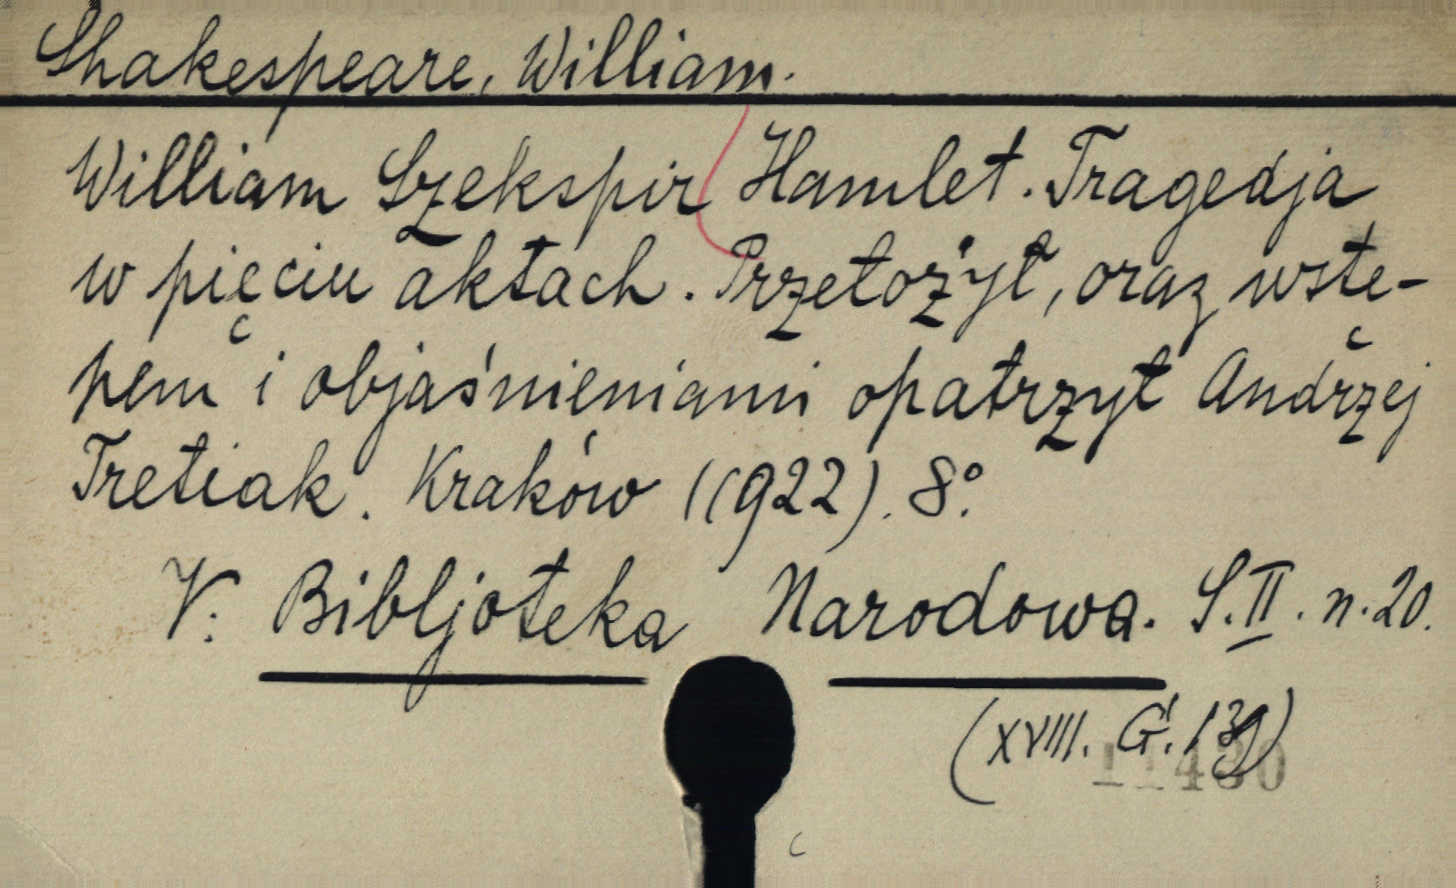 Shakespeare, William.
William Szekspir Hamlet. Tragedja
w pięciu aktach. Przełożył, oraz wstę-
pem i objaśnieniami opatrzył Andrzej
Tretiak. Kraków (1922). 8°.
V. Bibljoteka Narodowa. S.II. n. 20.
(XVIII. G. 139)
11430